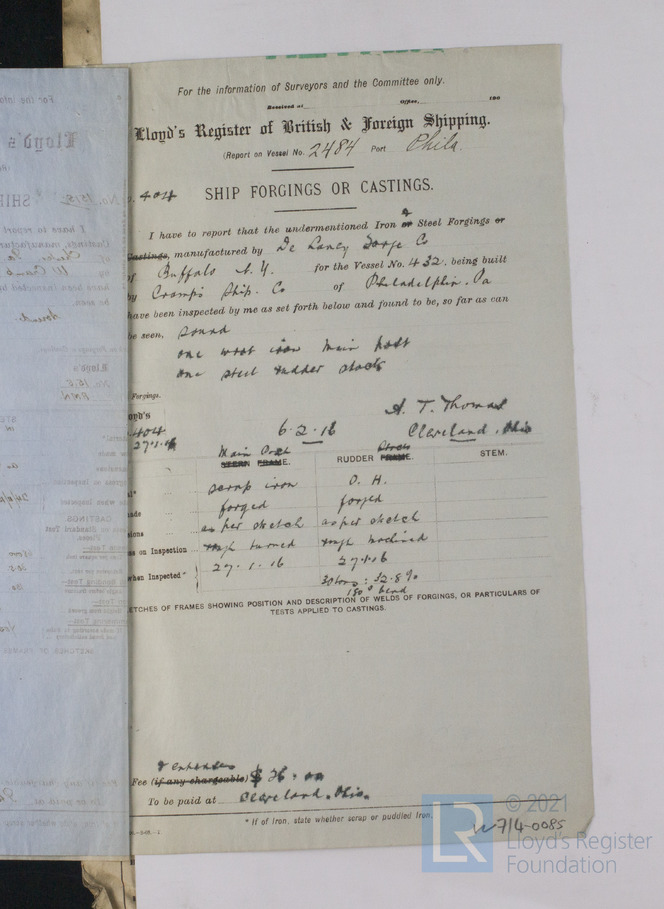 For the information of Surveyors and the Committee only.
Received at Office, 190
Lloyd's Register of British & Foreign Shipping.
(Report on Vessel No. 2484 Port Phila.
o. 404
SHIP FORGINGS OR CASTINGS.
I have to report that the undermentioned Iron or & Steel Forgings or
Castings, manufactured by De Laney Forge Co
of Buffalo N.Y. for the Vessel No. 432. being built
by Cramps Ship. Co of Philadelphia. Pa
have been inspected by me as set forth below and found to be, so far as can
be seen, sound
one wrot iron main post
one steel rudder stock
Forgings.
oyd's
404
27.1.16
A. T. Thomas
6-2-16 Cleveland. Ohio
Main Post Stock
STERN FRAME. RUDDER FRAME. STEM.
al* scrap iron O. H.
ade forged forged
sions as per sketch as per sketch
as on Inspection rough turned rough machined
when Inspected 27.1.16 27.1.16
30 tons : 32.8%
180° bend
ETCHES OF FRAMES SHOWING POSITION AND DESCRIPTION OF WELDS OF FORGINGS, OR PARTICULARS OF
TESTS APPLIED TO CASTINGS.
& expenses
Fee (if any chargeable) $ 26.00
To be paid at Cleveland. Ohio.
* If of Iron, state whether scrap or puddled Iron.
W714-0085
© 2021
LR
Lloyd's Register
Foundation